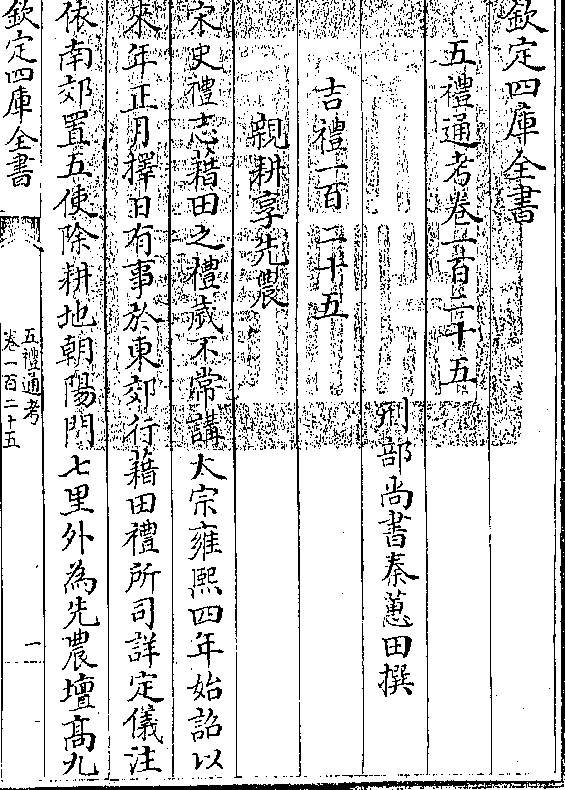 欽定四庫全書
五禮通考卷一百二十五
刑部尚書秦蕙田撰
吉禮一百二十五
親耕享先農
宋史禮志藉田之禮歳不常講太宗雍熙四年始詔以
來年正月擇日有事於東郊行藉田禮所司詳定儀注
依南郊置五使除耕地朝陽門七里外為先農壇髙九
欽定四庫全書
五禮通考
卷一百二十五
一